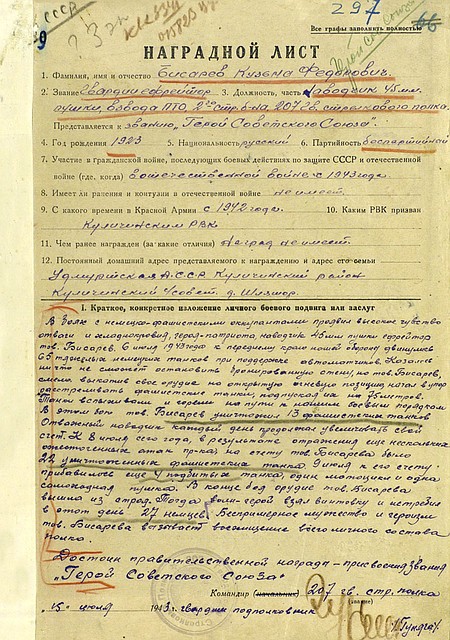 297
Все графы заполнить полностью
НАГРАДНОЙ ЛИСТ
1. Фамилия, имя и отчество Бисаров Кузьма Федорович.
2. Звание Гвардии ефрейтор 3. Должность, часть Наводчик 45 мм.
пушки, взвода ПТО, 2го стр. б-на 207 гв. стрелкового полка.
Представляется к званию „Герой Советского Союза“.
4. Год рождения 1923 5. Национальность русский 6. Партийность беспартийный
7. Участие в гражданской войне, последующих боевых действиях по защите СССР и отечественной
войне (где, когда) в отечественной войне с 1943 года.
8. Имеет ли ранения и контузии в отечественной войне не имеет.
9. С какого времени в Красной Армии с 1942 года. 10. Каким РВК призван
РВК
11. Чем ранее награжден (за какие отличия) Наград не имеет.
12. Постоянный домашний адрес представляемого к награждению и адрес его семьи
Удмуртская АССР район
с/совет. д.
I. Краткое, конкретное изложение личного боевого подвига или заслуг
В боях с немецко-фашистскими оккупантами проявил высокое чувство
отваги и хладнокровия, герой-патриот наводчик 45 мм пушки ефрейтор
тов. Бисаров. 6 июля 1943 года к переднему краю нашей обороны двинулись
65 тяжелых немецких танков при поддержке автоматчиков. Казалось
ничто не сможет остановить бронированную стену, но тов. Бисаров,
смело выкатил свое орудие на открытую огневую позицию, начал в упор
расстреливать фашистские танки, подпуская их на метров.
Танки вспыхивали и горели на пути к нашим боевым порядкам
В этом бою тов. Бисаров уничтожил 13 фашистских танков
Отважный наводчик каждый день продолжал увеличивать свой
счет. К 8 июля сего года, в результате отражения еще нескольких
ожесточенных атак пр-ка, на счету тов. Бисарова было
22 уничтоженных фашистских танка. 9 июля к его счету
прибавились еще 4 подбитых танка, один мотоцикл и одна
самоходная пушка. В конце боя орудие тов. Бисарова
вышло из строя. Тогда воин-герой взял винтовку и истребил
в этот день 27 немцев. Беспримерное мужество и героизм
тов. Бисарова вызывает восхищение всего личного состава
полка.
Достоин правительственной награды - присвоения звания
"Герой Советского Союза"
Командир (начальник) 207 гв. стр. полка
(звание)
15 июля 1943 г. Гвардии подполковник